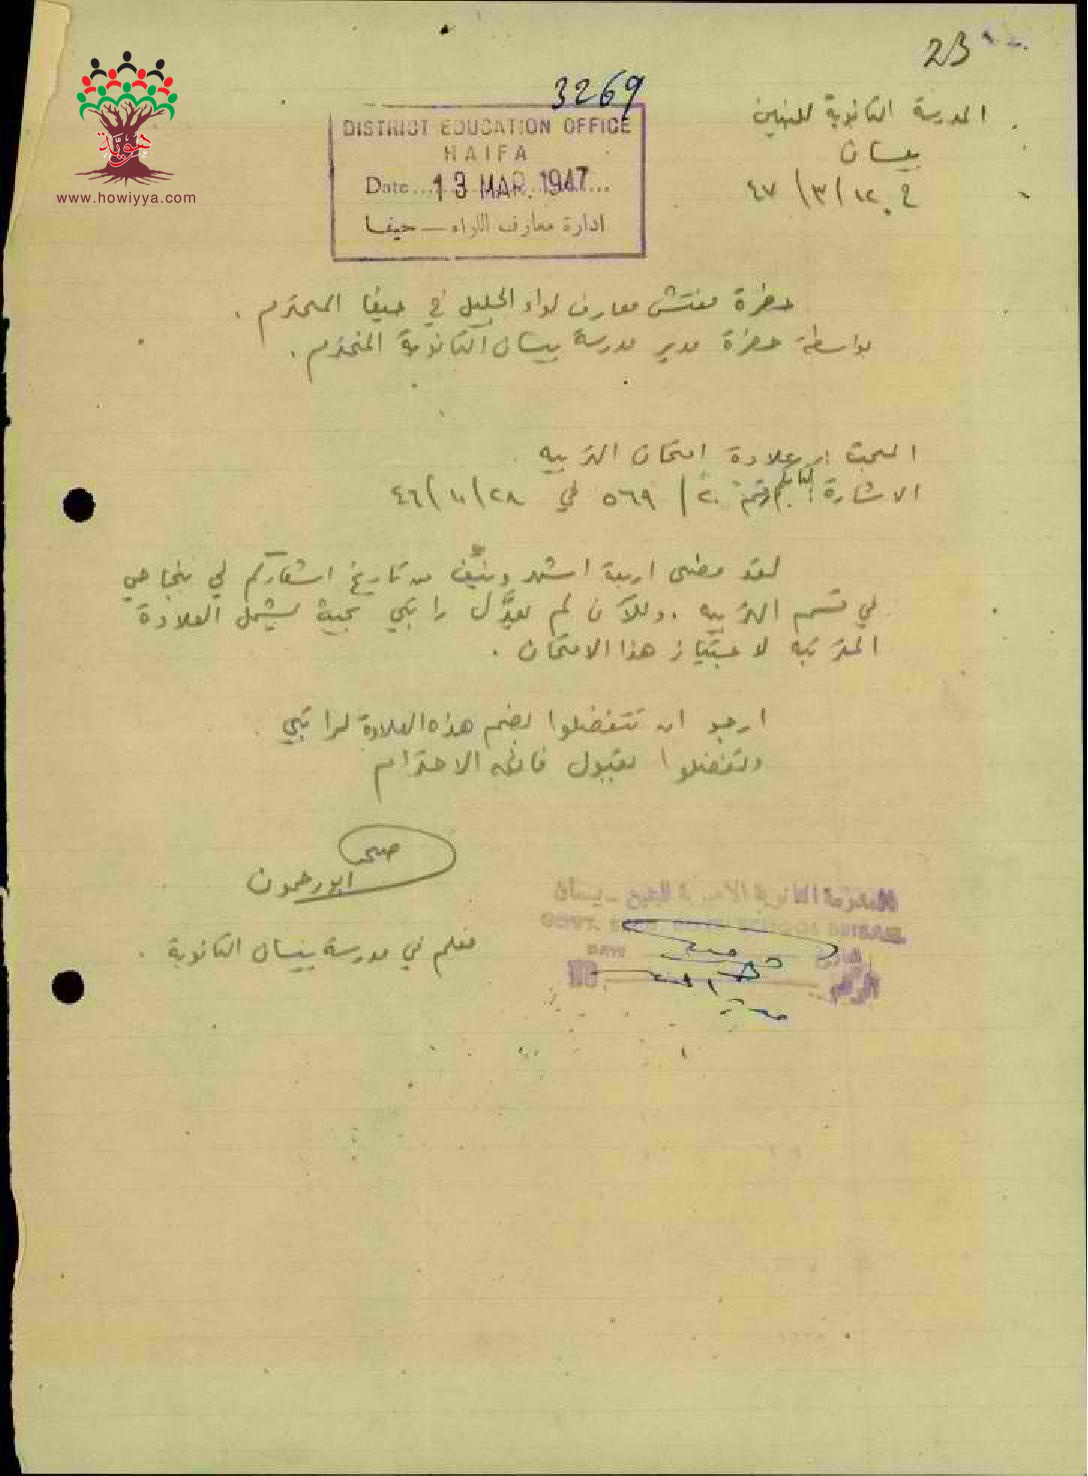 23
3269
DISTRICT EDUCATION OFFICE
HAIFA
Date 13 MAR. 1947
ادارة معارف اللواء — حيفا
هوية
www.howiyya.com
المدرسة الثانوية للبنين
بيسان
في ١٢/٣/٤٧
حضرة مفتش معارف لواء الجليل في حيفا المحترم .
بواسطة حضرة مدير مدرسة بيسان الثانوية المحترم .
البحث : علاوة امتحان التربيه
الاشارة : كتابكم رقم ٢٠/٥٦٩ في ٢٨/١١/٤٦
لقد مضى اربعة اشهر ونيّف من تاريخ اشعاركم لي بنجاحي
في قسم التربيه . وللآن لم يعدَّل راتبي بحيث يشمل العلاوة
المترتبه لاجتياز هذا الامتحان .
ارجو ان تتفضلوا بضم هذه العلاوة لراتبي
وتفضلوا بقبول فائق الاحترام
ابو رحمون
معلم في مدرسة بيسان الثانوية .
المدرسة الثانوية للبنين - بيسان
GOVT. BOYS SCHOOL BEISAN
DATE
التاريخ
NO
الرقم